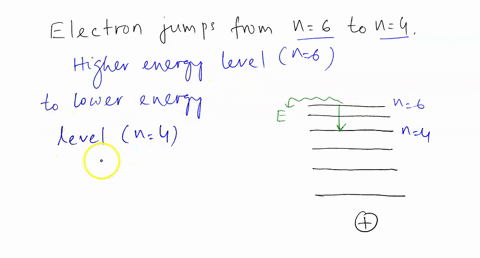 Electron jumps from n=6 to n=4.
Higher energy level (n=6)
to lower energy
level (n=4)
E
n=6
n=4
+